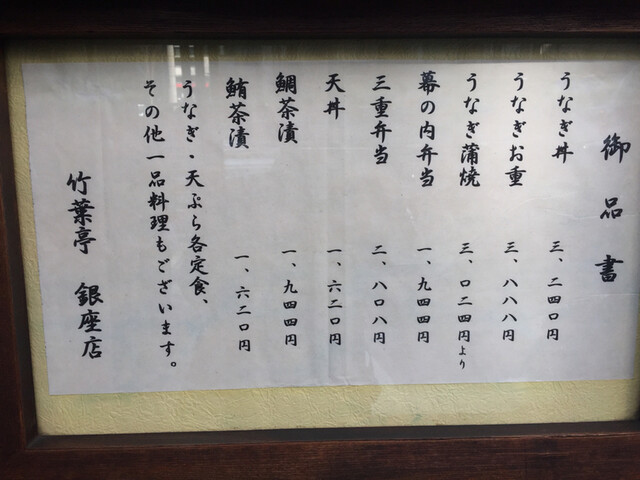 御品書
うなぎ丼 三、二四〇円
うなぎお重 三、八八八円
うなぎ蒲焼 三、〇二四円より
幕の内弁当 一、九四四円
三重弁当 二、八〇八円
天丼 一、六二〇円
鯛茶漬 一、九四四円
鮪茶漬 一、六二〇円
うなぎ・天ぷら各定食、
その他一品料理もございます。
竹葉亭 銀座店